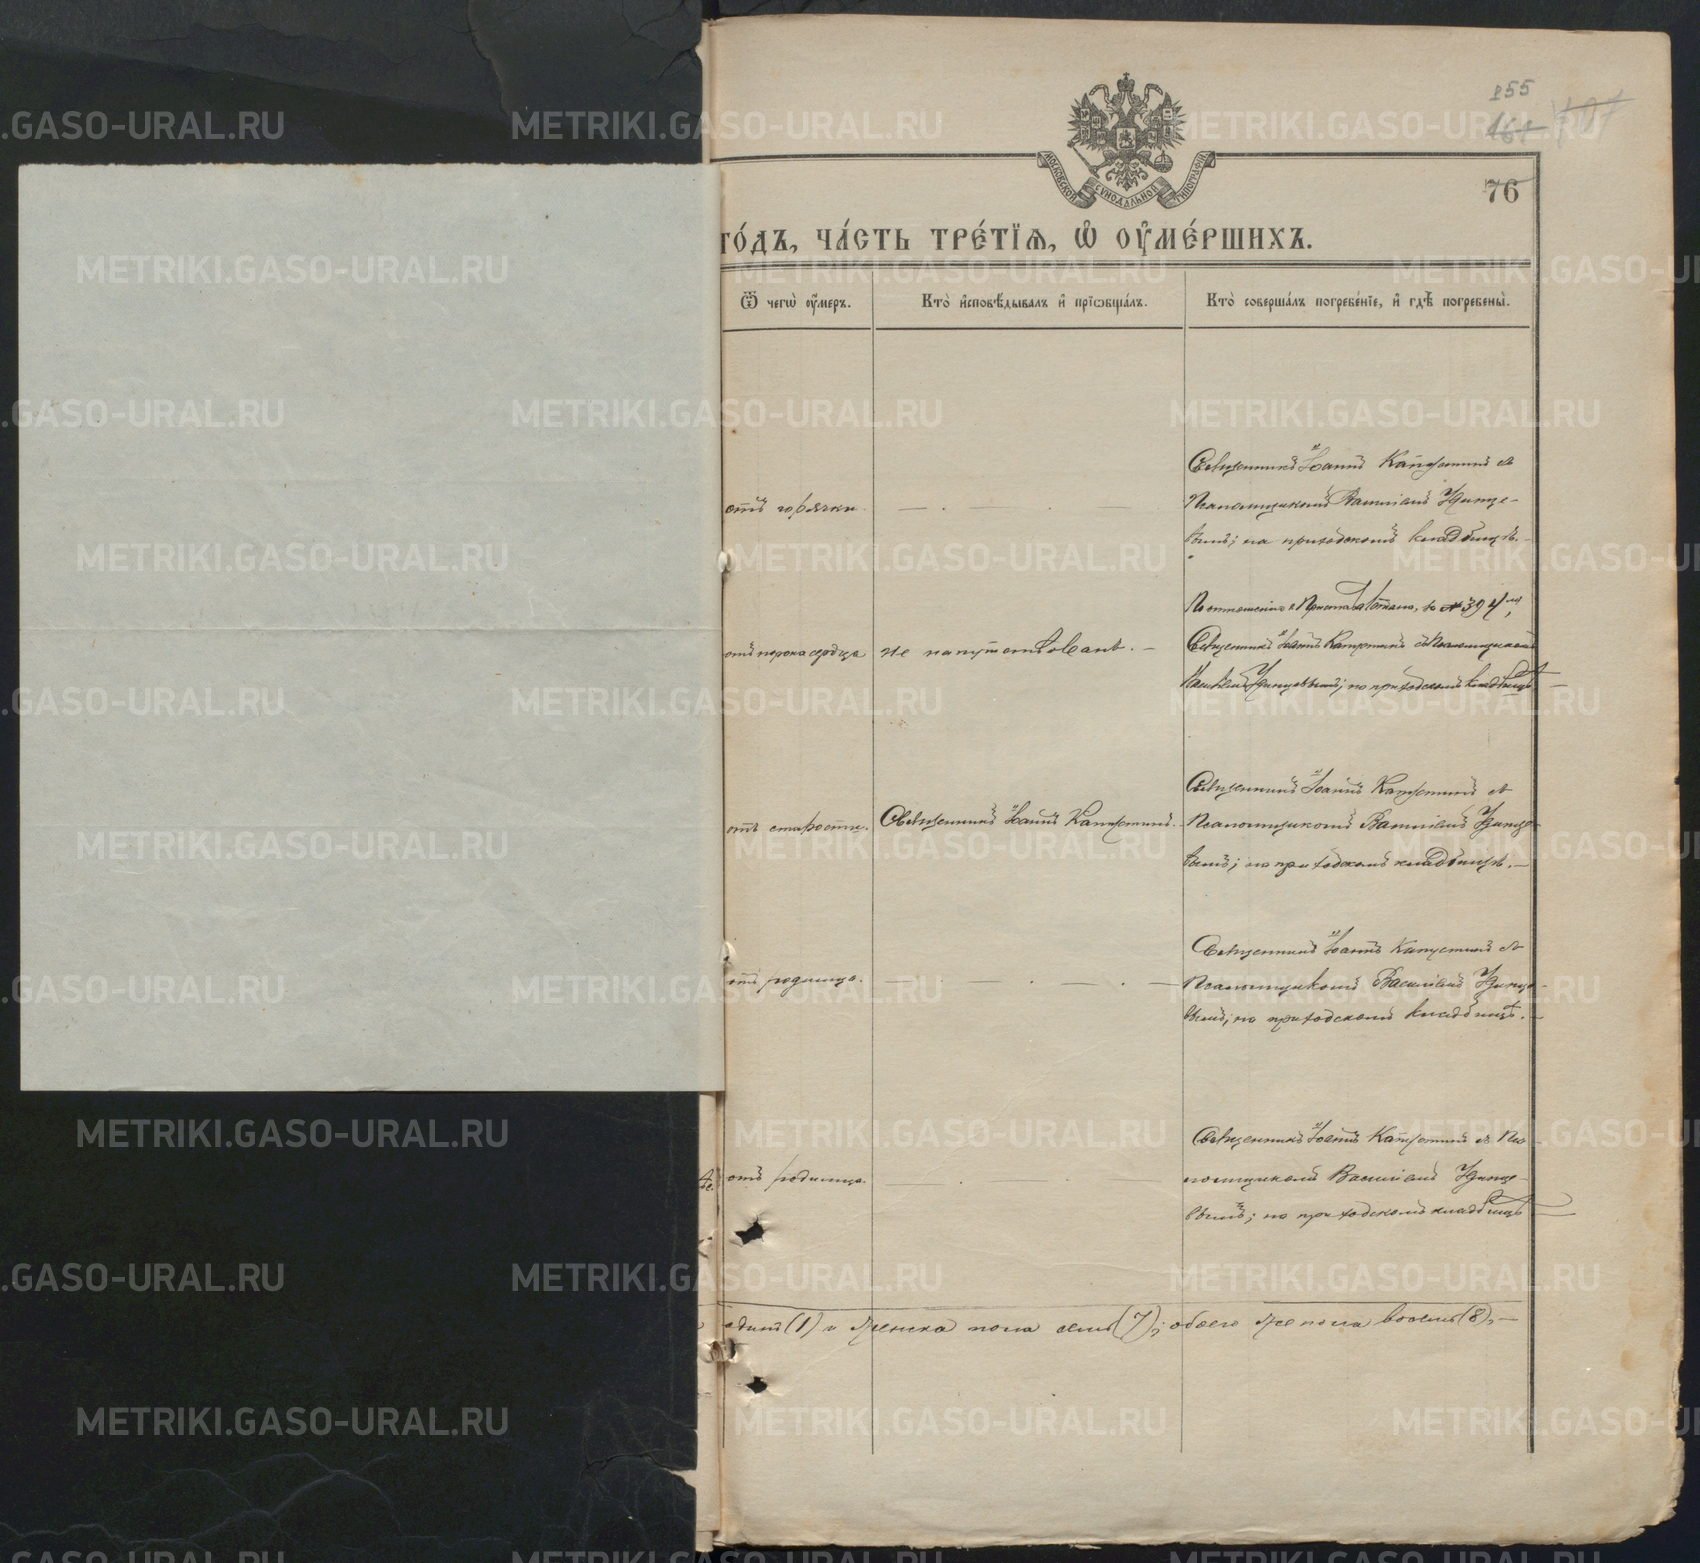 255
161
76
МОСКОВСКОЙ СУНОДАЛЬНОЙ ТИПОГРАФІИ
го́дъ, ча́сть тре́тїѧ, ѡ҆ ᲂу҆ме́ршихъ.
Ѿ чегѡ̀ ᲂу҆́меръ.
Кто̀ и҆сповѣ́дывалъ и҆ прїѡбща́лъ.
Кто̀ соверша́лъ погребе́нїе, и҆ гдѣ̀ погребены̀.
отъ горячки.
Священникъ Іоаннъ Капустинъ съ
Псаломщикомъ Василіемъ Удинце-
вымъ; на приходскомъ кладбищѣ.
отъ порока сердца
не напутствованъ. —
По отношенію Пристава стана, за № 394
Священникъ Іоаннъ Капустинъ съ Псаломщикомъ
Василіемъ Удинцевымъ; на приходскомъ кладбищѣ
отъ старости.
Священникъ Іоаннъ Капустинъ.
Священникъ Іоаннъ Капустинъ съ
Псаломщикомъ Василіемъ Удинце-
вымъ; на приходскомъ кладбищѣ. —
отъ родимца.
Священникъ Іоаннъ Капустинъ съ
Псаломщикомъ Василіемъ Удинце-
вымъ; на приходскомъ кладбищѣ. —
отъ родимца.
Священникъ Іоаннъ Капустинъ съ Пса-
ломщикомъ Василіемъ Удинце-
вымъ; на приходскомъ кладбищѣ
одинъ (1) и женска пола семь (7); обоего же пола восемь (8). —
METRIKI.GASO-URAL.RU